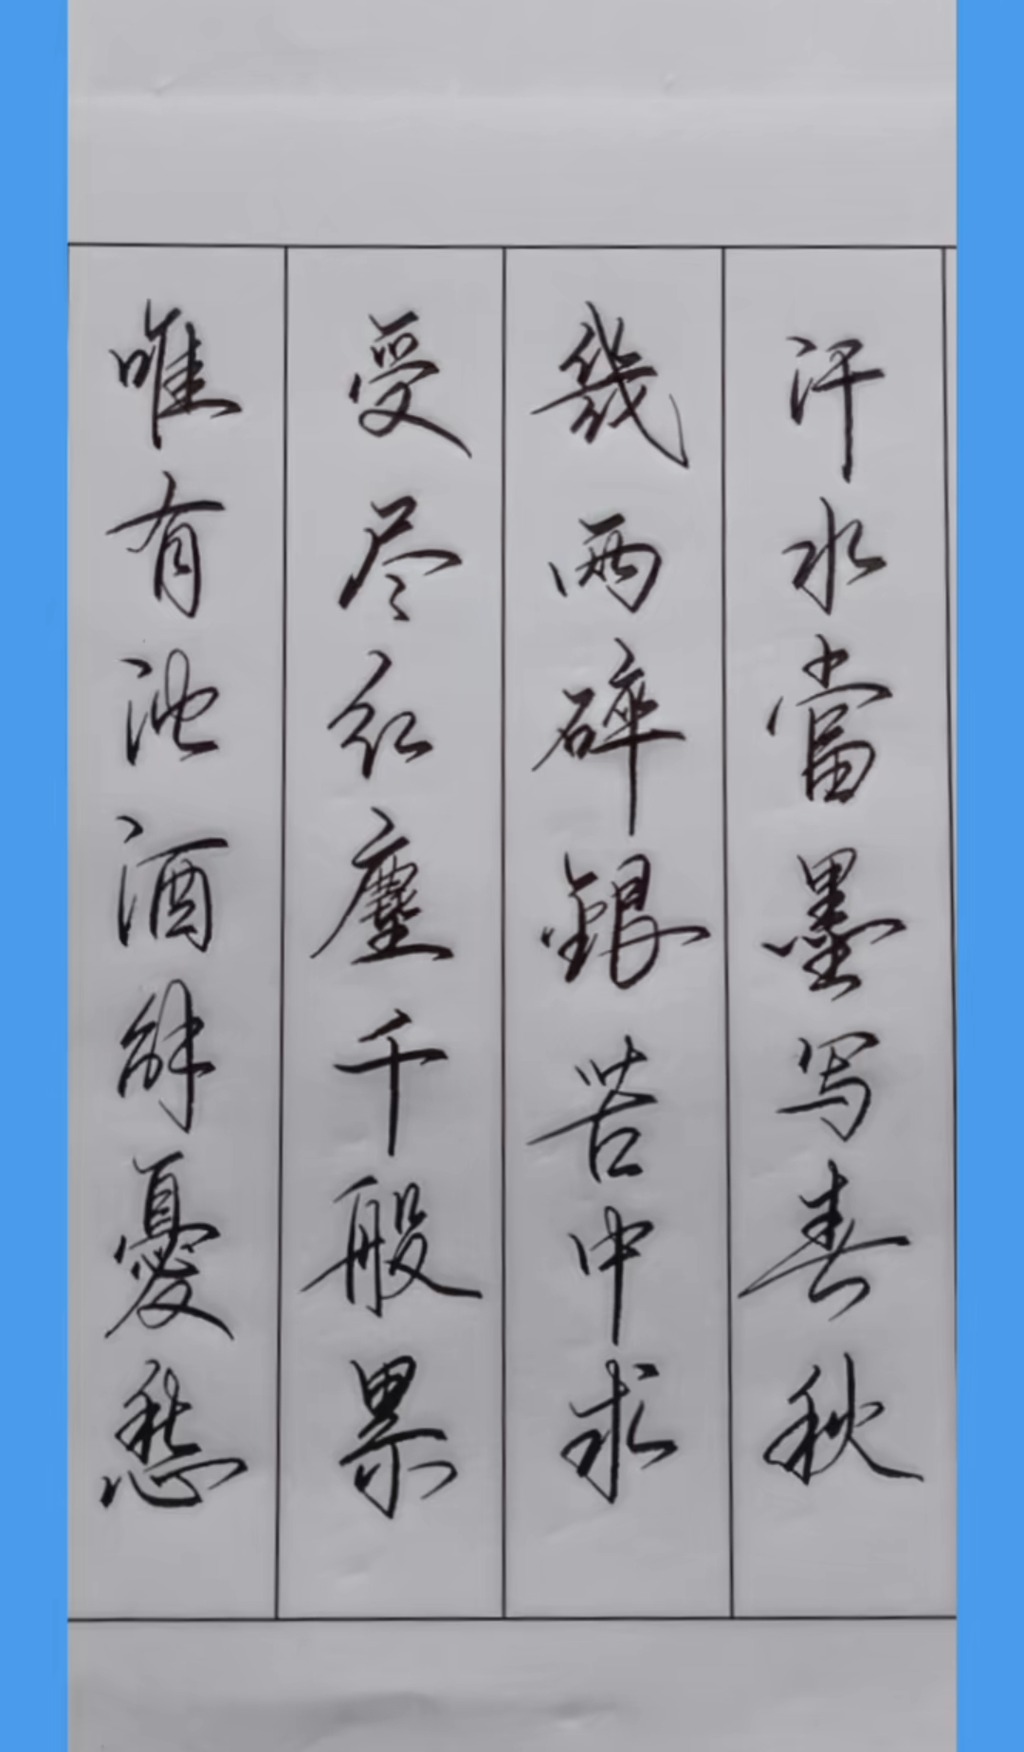 汗水當墨写春秋
幾两碎銀苦中求
受尽红塵千般累
唯有池酒解憂愁